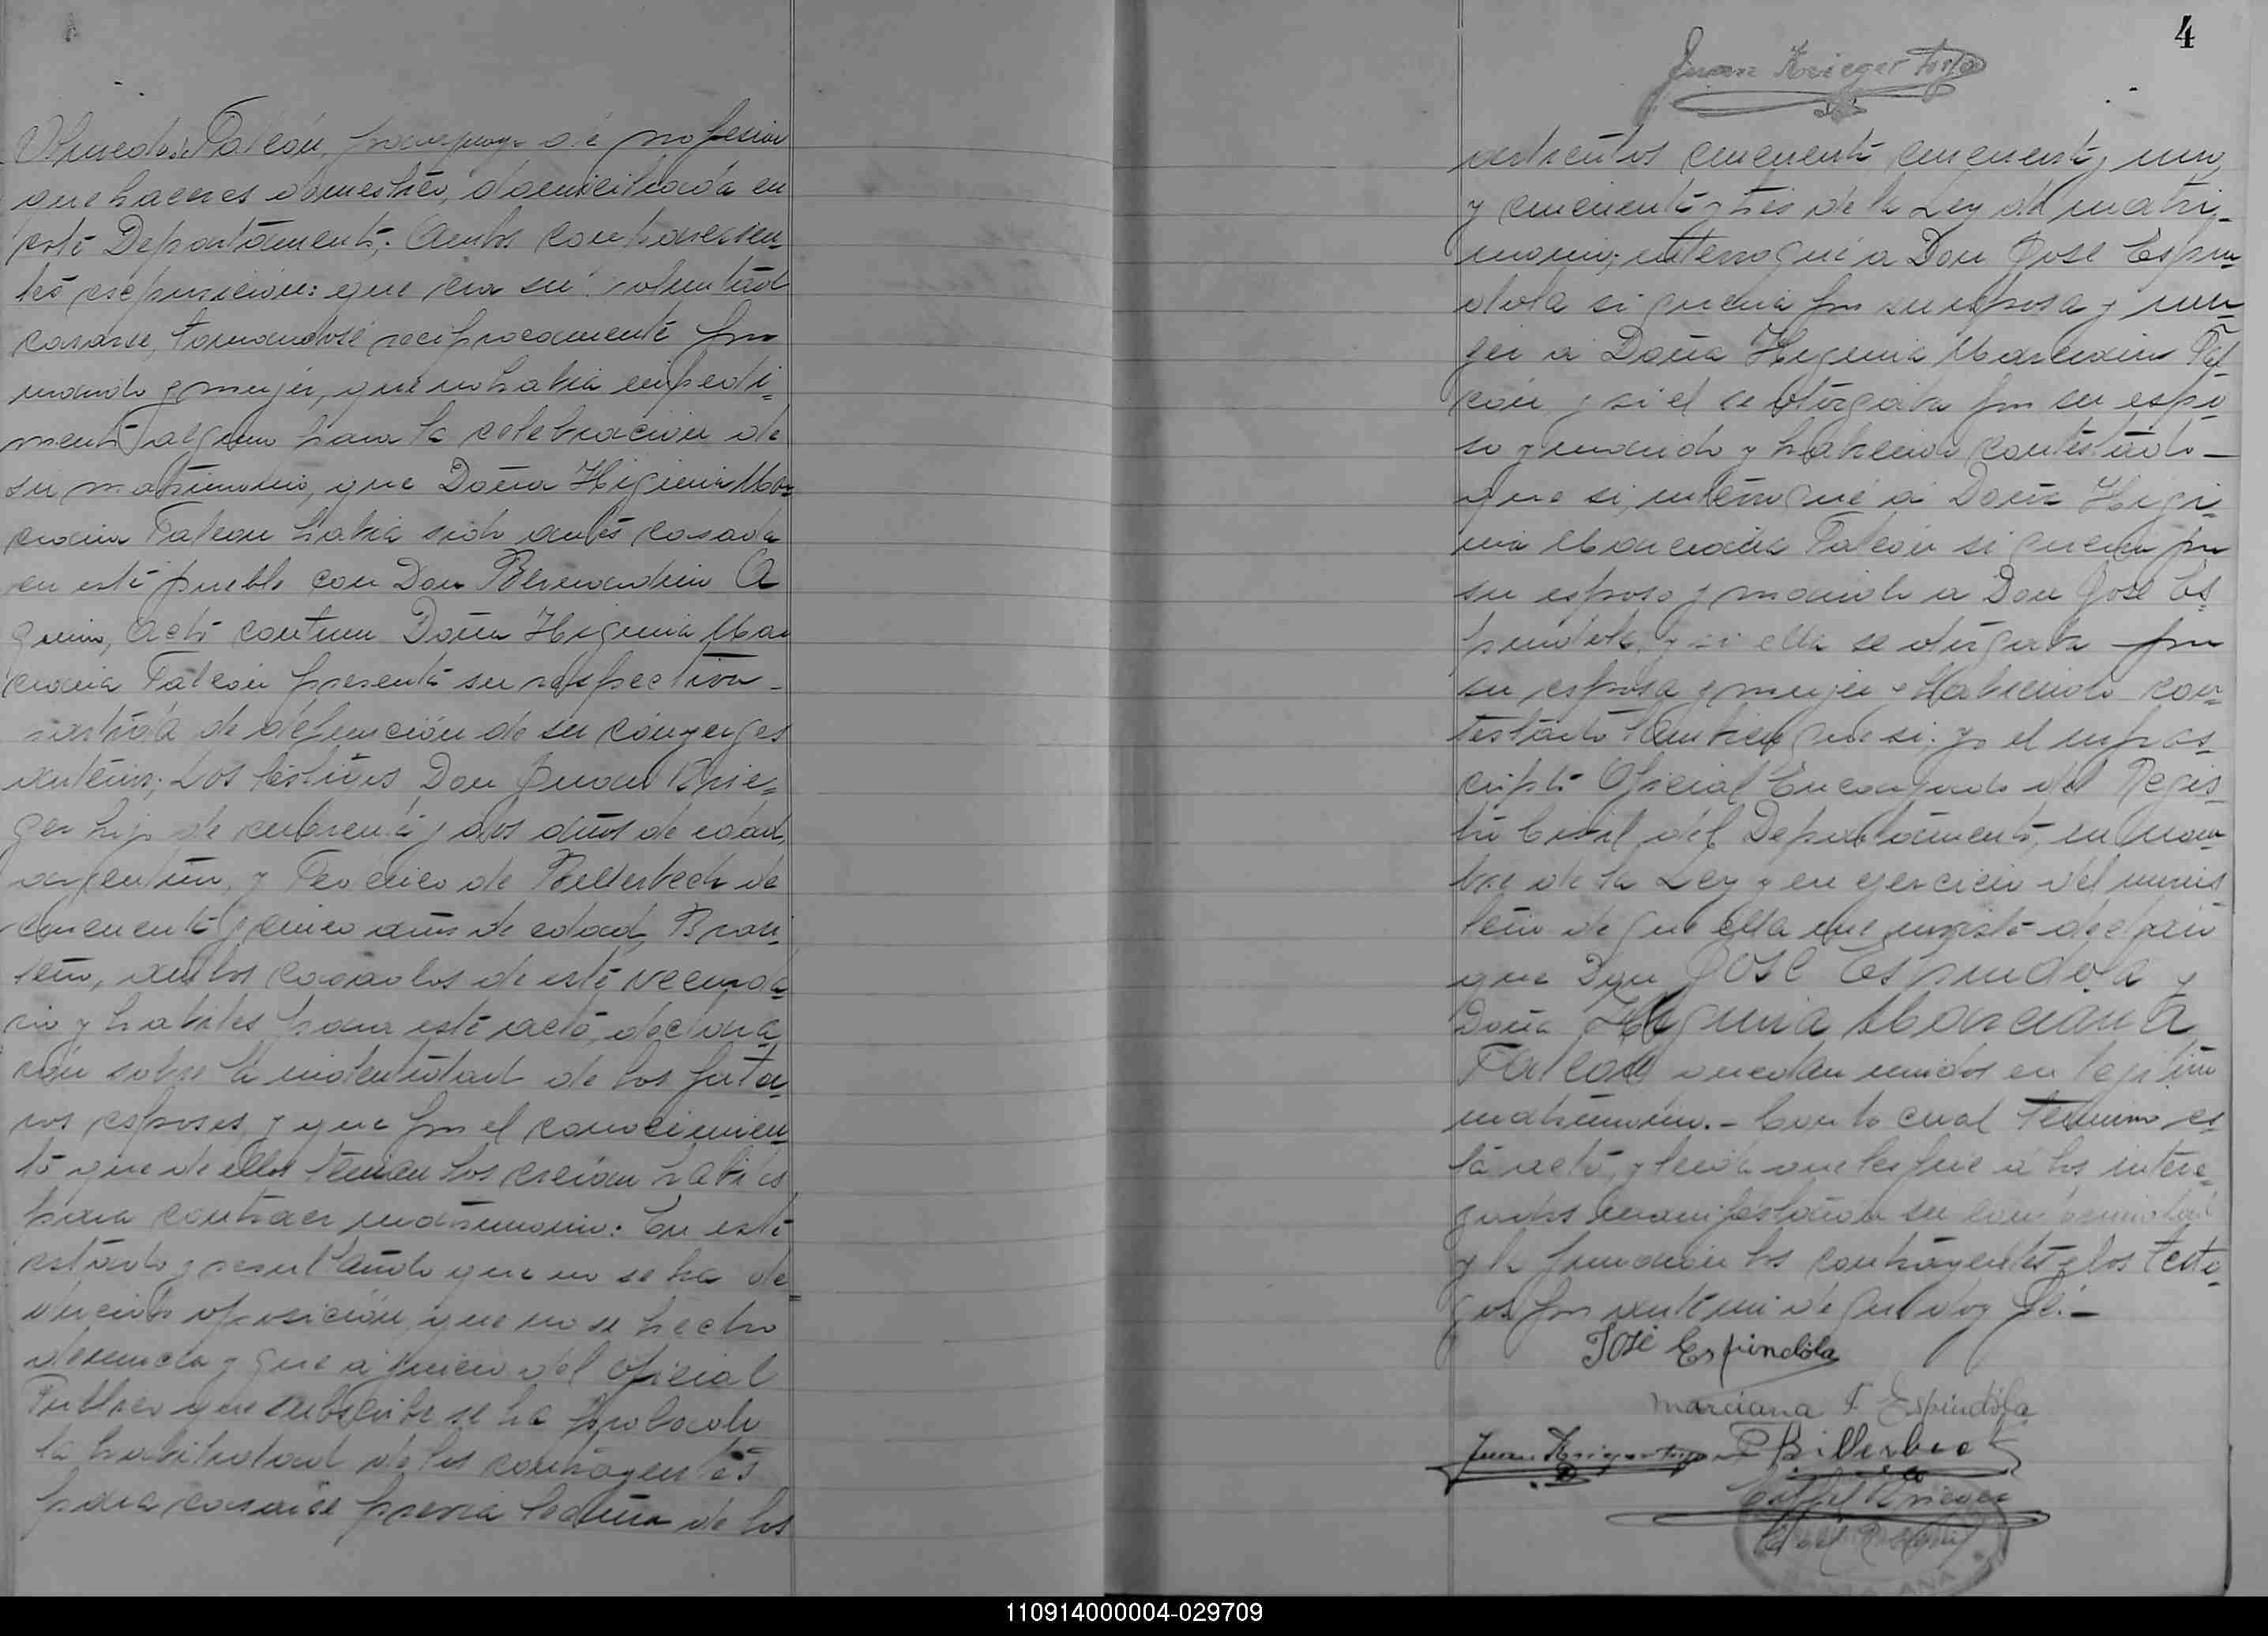 Falcón, paraguaya de profesión
quehaceres doméstico, domiciliada en
este Departamento; Ambos comparesien
tes espusieron: que era su voluntad
casarse, tomandose reciprocamente por
marido y mujer, que no habia impedi-
mento alguno para la celebración de
su matrimonio, que Doña Higinia Mar-
ciana Falcon habia sido antes casada
en este pueblo con Don Bernardino A
quino, Acto continuo Doña Higinia Mar
ciana Falcón presentó su respectiva
partida de defunción de su conyerges
anterior; Los testigos Don Juan Krie-
ger hijo de cuarenta y dos años de edad,
argentino, y Federico de Billerbeck de
cincuenta y cinco años de edad, Brasi-
lero, ambos casados de este vecinda-
rio y habiles para este acto, declara
rón sobre la indentidad de los futu-
ros esposos y que por el conocimien-
to que de ellos tenian los creian habiles
para contraer matrimonio: En este
estado y resultando que no se ha de-
ducido oposición, que no se hecho
denuncia y que a juicio del Oficial
Publico que subscribe se ha probado
la habilidad de los contrayentes
para casarse previa lectura de los
4
Juan Krieger hijo
articulos cincuenta cincuenta y uno
y cincuenta y tres de la Ley de matri-
monio, interrogué a Don José Espin-
dola si queria por su esposa y mu-
jer a Doña Higinia Marciana Fal-
cón y si el se otorgaba por su espo
so y marido y habiendo contestado
que si, interrogué a Doña Higi-
nia Marciana Falcón si queria por
su esposo y marido a Don José Es-
pindola, y si ella se otorgaba por
su esposa y mujer y Habiendo con-
testado tambien que si; yo el infras-
cripto Oficial Encargado del Regis-
tro Civil del Departamento, en nom-
bre de la Ley y en ejercicio del minis
terio de que ella me inviste declaro
que Don José Espindola y
Doña Higinia Marciana
Falcon quedan unidos en legitimo
matrimonio.- Con lo cual termino es-
ta acto, y leida que les fue a los intere-
sados manifestaron su conformidad
y la firmaron los contrayentes y los testi-
gos por ante mi de que doy fé.-
José Espindola
Marciana F. Espindola
Juan Krieger hijo F Billerbeck
Krieger